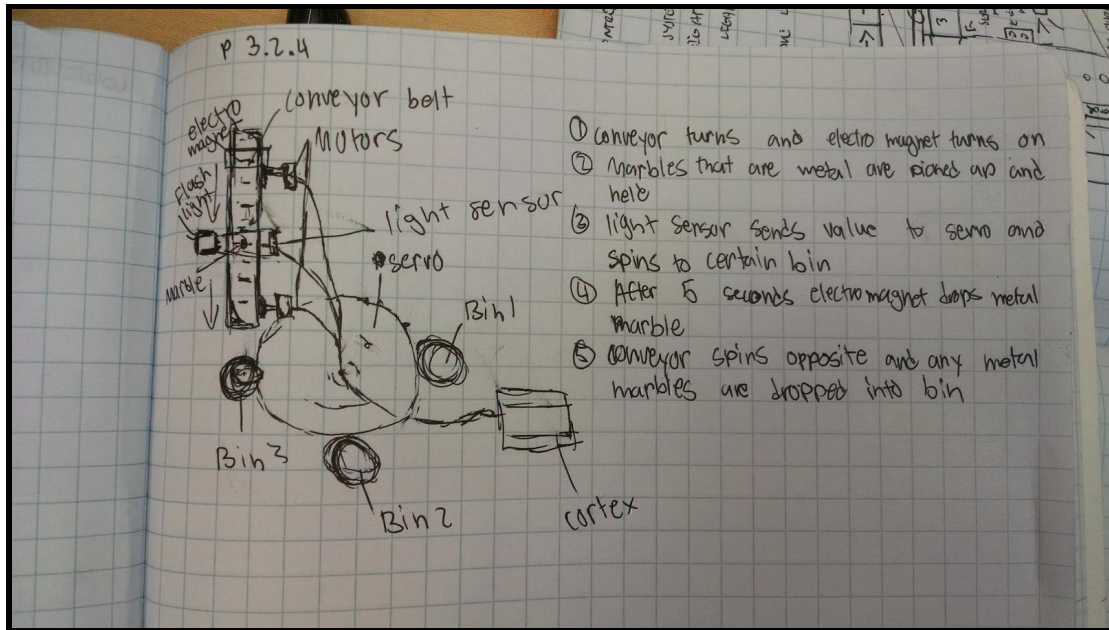 P 3.2.4
conveyor belt
electro
magnet
Motors
Flash
light
light sensor
servo
marble
Bin 1
Bin 3
Bin 2
cortex
① conveyor turns and electro magnet turns on
② Marbles that are metal are up and
held
③ light sensor sends value to servo and
spins to certain bin
④ After 5 seconds electromagnet drops metal
marble
⑤ conveyor spins opposite and any metal
marbles are dropped into bin